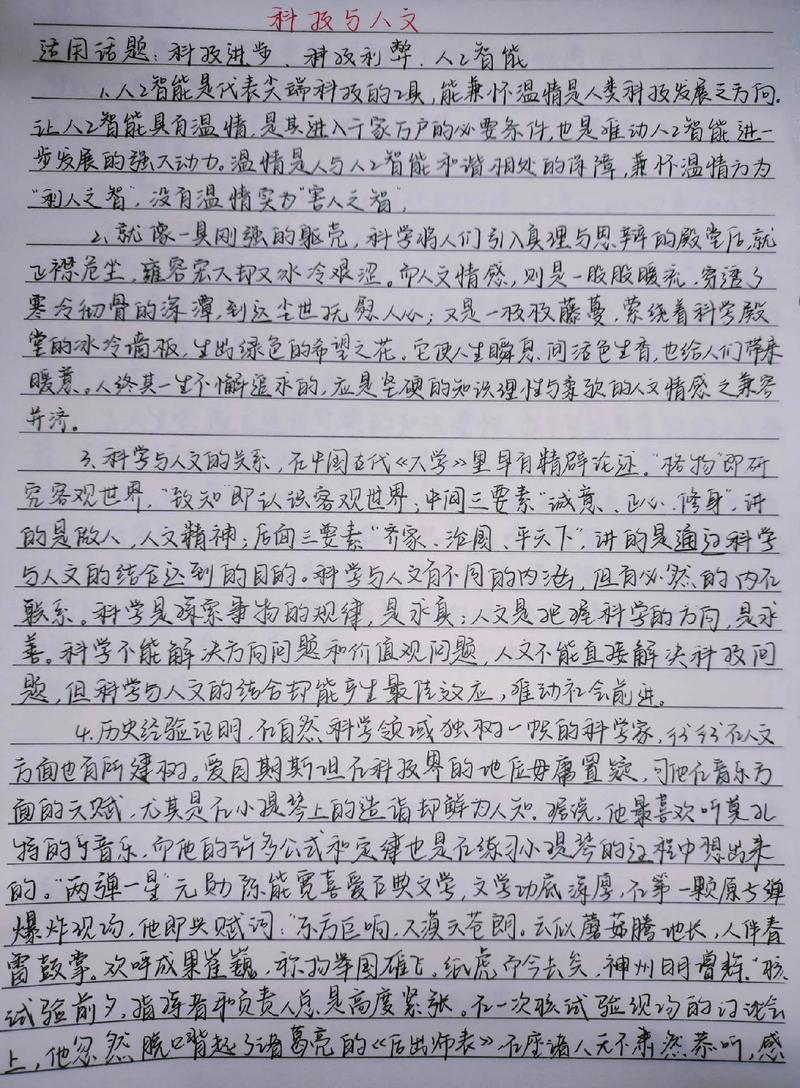 科技与人文
适用话题：科技进步、科技利弊、人工智能
1.人工智能是代表尖端科技的工具，能兼怀温情是人类科技发展之方向。
让人工智能具有温情，是其进入千家万户的必要条件，也是推动人工智能进一
步发展的强大动力。温情是人与人工智能和谐相处的保障，兼怀温情方为
“利人之智”，没有温情实为“害人之智”。
2.就像一具刚强的躯壳，科学将人们引入真理与思辩的殿堂后，就
正襟危坐，雍容宏大却又冰冷艰涩。而人文情感，则是一股股暖流，穿透了
寒冷彻骨的深潭，到达尘世抚慰人心；又是一枝枝藤蔓，萦绕着科学殿
堂的冰冷墙板，生出绿色的希望之花。它使人生瞬息间活色生香，也给人们带来
暖意。人终其一生不懈追求的，应是坚硬的知识理性与柔软的人文情感之兼容
并济。
3.科学与人文的关系，在中国古代《大学》里早有精辟论述。“格物”即研
究客观世界，“致知”即认识客观世界；中间三要素“诚意、正心、修身”，讲
的是做人，人文精神；后面三要素“齐家、治国、平天下”，讲的是通过科学
与人文的结合达到的目的。科学与人文有不同的内涵，但有必然的内在
联系。科学是探索事物的规律，是求真；人文是把握科学的方向，是求
善。科学不能解决方向问题和价值观问题，人文不能直接解决科技问
题，但科学与人文的结合却能产生最佳效应，推动社会前进。
4.历史经验证明，在自然科学领域独树一帜的科学家，往往在人文
方面也有所建树。爱因期斯坦在科技界的地位毋庸置疑，可他在音乐方
面的天赋，尤其是在小提琴上的造诣却鲜为人知。据说，他最喜欢听莫扎
特的音乐，而他的许多公式和定律也是在练习小提琴的过程中想出来
的。“两弹一星”元勋陈能宽喜爱古典文学，文学功底深厚，在第一颗原子弹
爆炸现场，他即兴赋词：“东方巨响，大漠天苍朗。云似蘑菇腾地长，人伴春
雷鼓掌。欢呼成果崔巍，称扬举国雄飞。纸虎而今去矣，神州日月增辉。”核
试验前夕，指挥者和负责人总是高度紧张。在一次核试验现场的讨论会
上，他忽然脱口背起了诸葛亮的《后出师表》，在座诸人无不肃然恭听，感